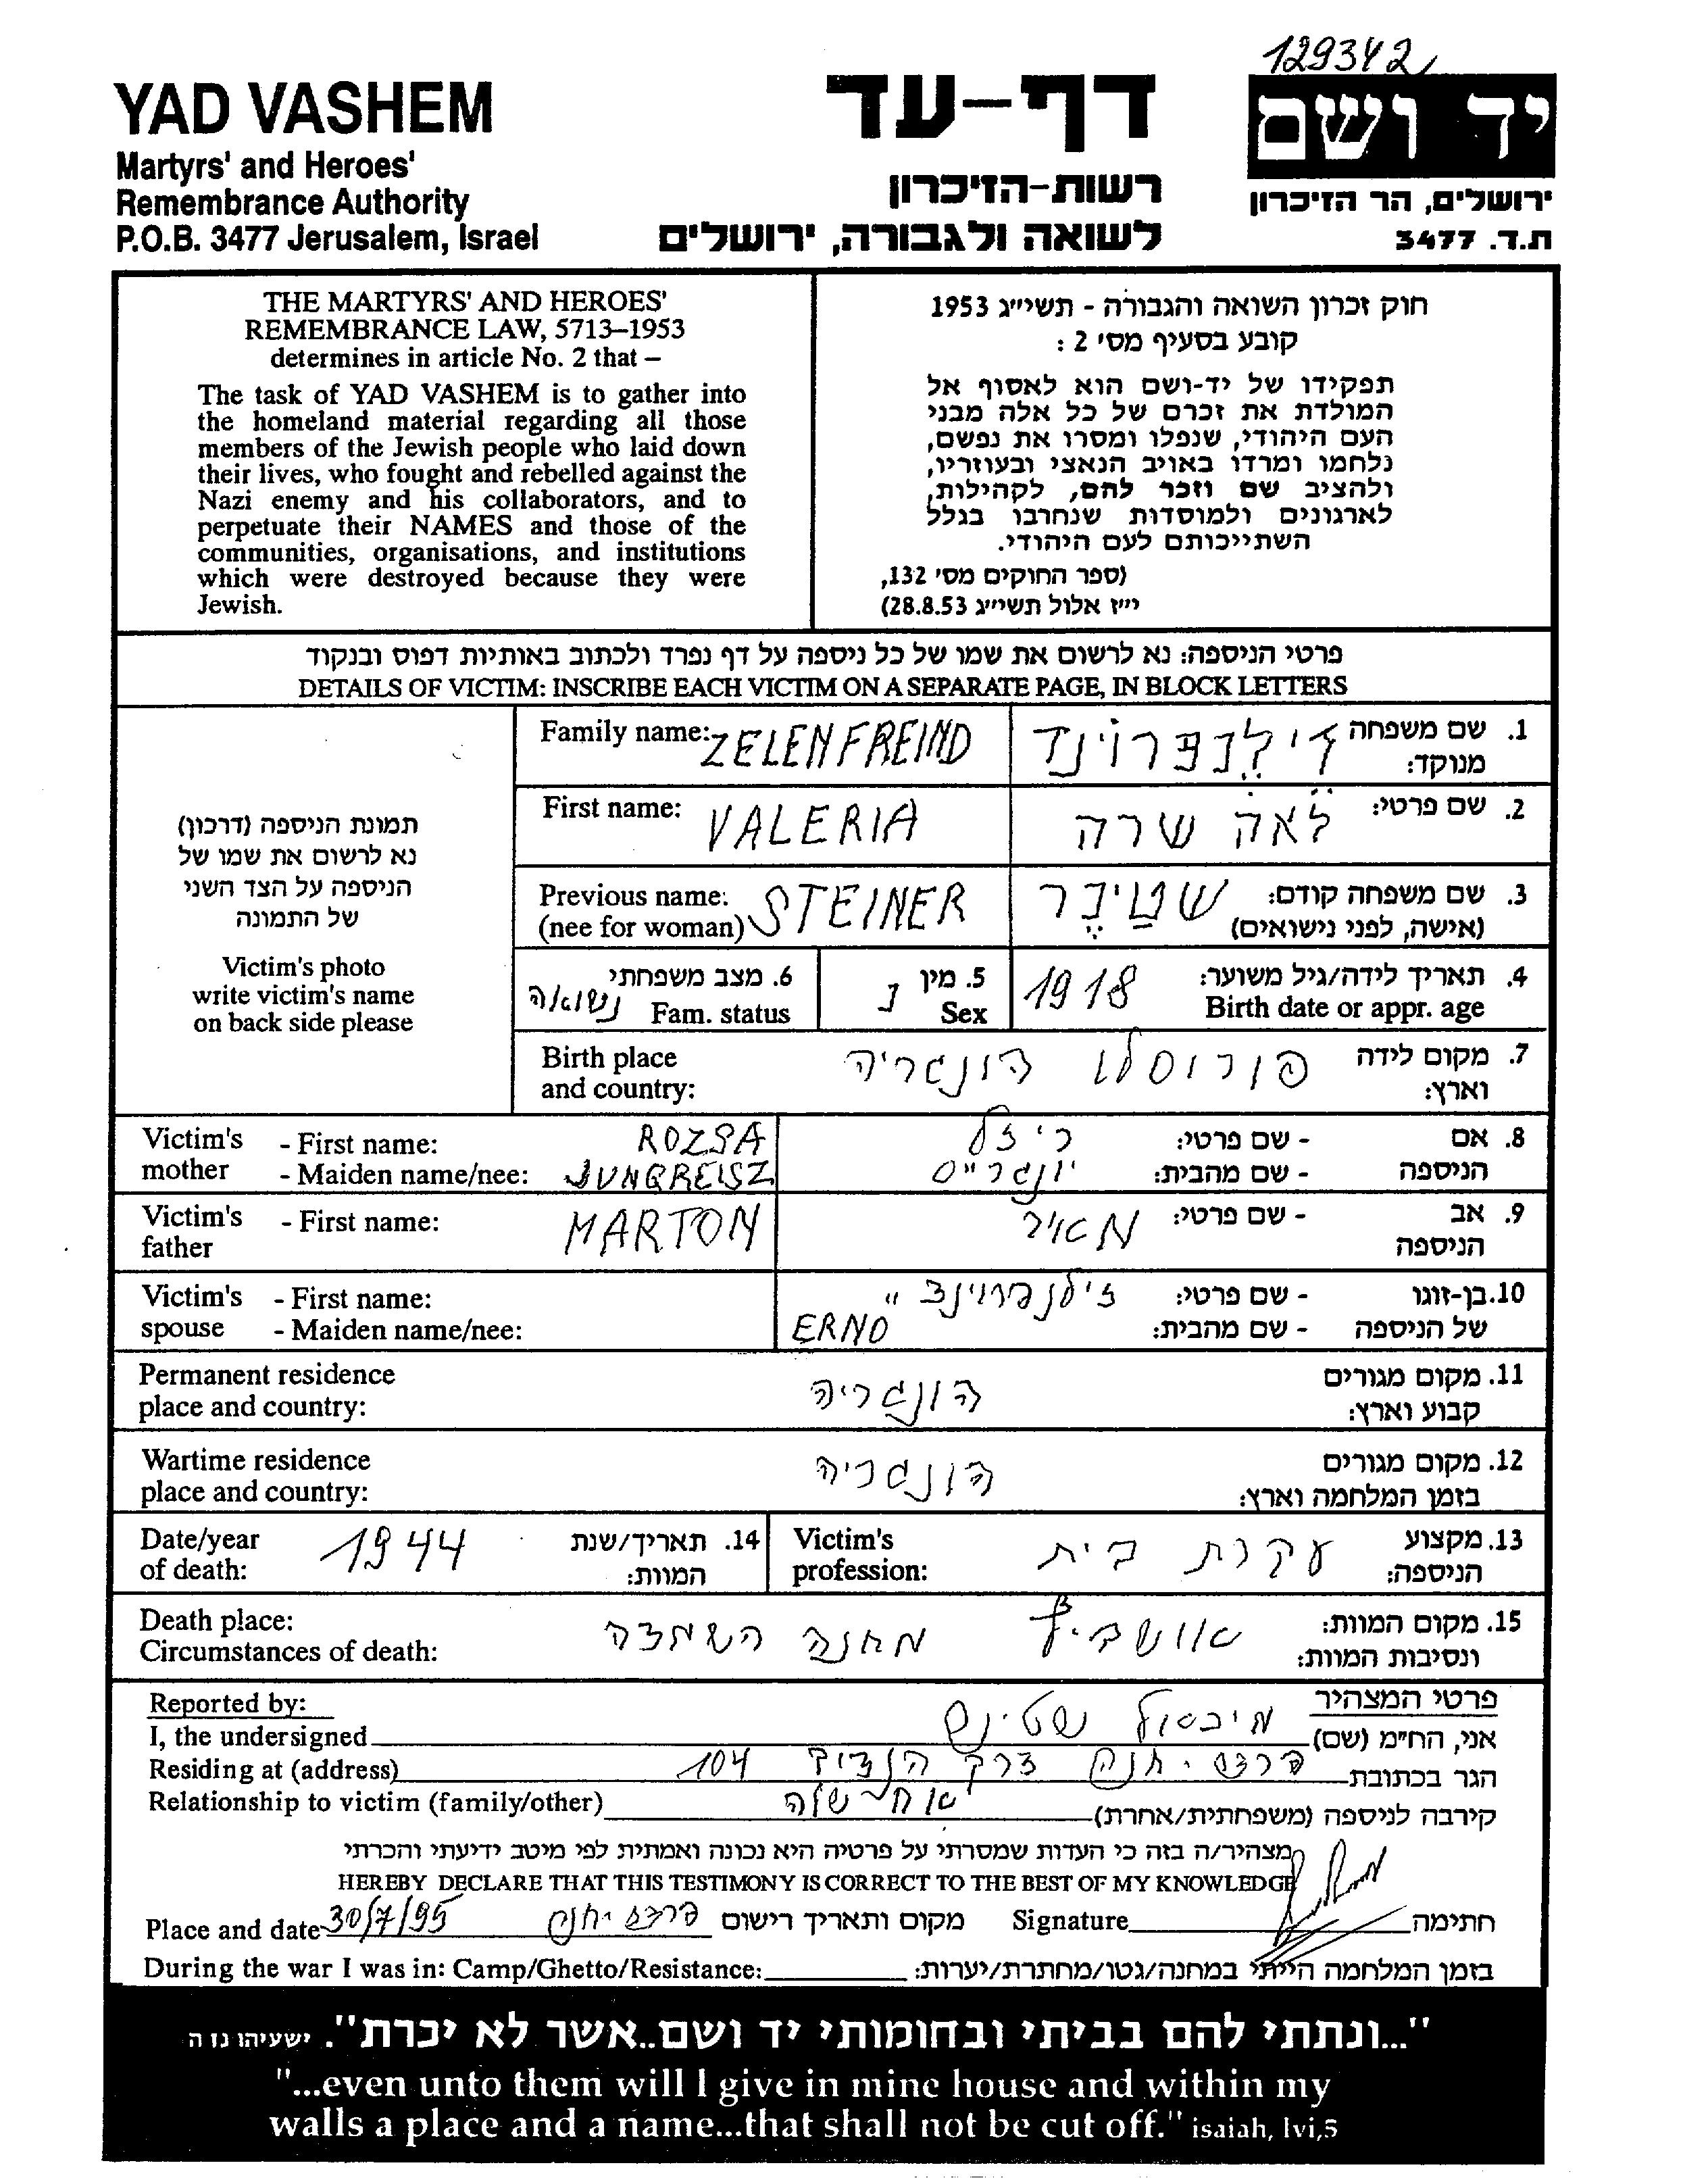 129342
YAD VASHEM
Martyrs' and Heroes'
Remembrance Authority
P.O.B. 3477 Jerusalem, Israel
דף-עד
רשות-הזיכרון
לשואה ולגבורה, ירושלים
יד ושם
ירושלים, הר הזיכרון
ת.ד. 3477
THE MARTYRS' AND HEROES'
REMEMBRANCE LAW, 5713–1953
determines in article No. 2 that –
The task of YAD VASHEM is to gather into
the homeland material regarding all those
members of the Jewish people who laid down
their lives, who fought and rebelled against the
Nazi enemy and his collaborators, and to
perpetuate their NAMES and those of the
communities, organisations, and institutions
which were destroyed because they were
Jewish.
חוק זכרון השואה והגבורה - תשי״ג 1953
קובע בסעיף מס׳ 2 :
תפקידו של יד-ושם הוא לאסוף אל
המולדת את זכרם של כל אלה מבני
העם היהודי, שנפלו ומסרו את נפשם,
נלחמו ומרדו באויב הנאצי ובעוזריו,
ולהציב שם וזכר להם, לקהילות,
לארגונים ולמוסדות שנחרבו בגלל
השתייכותם לעם היהודי.
(ספר החוקים מס׳ 132,
י״ז אלול תשי״ג 28.8.53)
פרטי הניספה: נא לרשום את שמו של כל ניספה על דף נפרד ולכתוב באותיות דפוס ובנקוד
DETAILS OF VICTIM: INSCRIBE EACH VICTIM ON A SEPARATE PAGE, IN BLOCK LETTERS
תמונת הניספה (דרכון)
נא לרשום את שמו של
הניספה על הצד השני
של התמונה
Victim's photo
write victim's name
on back side please
Family name: ZELENFREIND
1. שם משפחה מנוקד: זילנפרוינד
First name: VALERIA
2. שם פרטי: לאה שרה
Previous name: (nee for woman) STEINER
3. שם משפחה קודם: (אישה, לפני נישואים) שטינר
4. תאריך לידה/גיל משוער: Birth date or appr. age 1918
5. מין Sex נ
6. מצב משפחתי Fam. status נשואה
Birth place and country:
7. מקום לידה וארץ: הונגריה
Victim's mother - First name: ROZSA
- Maiden name/nee: JUNGREISZ
8. אם הניספה - שם פרטי: ריזל
- שם מהבית: יונגרייס
Victim's father - First name: MARTON
9. אב הניספה - שם פרטי: מאיר
Victim's spouse - First name:
- Maiden name/nee:
10. בן-זוגו של הניספה - שם פרטי: זילנפרוינד
- שם מהבית: ERNO
Permanent residence place and country:
11. מקום מגורים קבוע וארץ: הונגריה
Wartime residence place and country:
12. מקום מגורים בזמן המלחמה וארץ: הונגריה
Date/year of death: 1944
14. תאריך/שנת המוות:
Victim's profession:
13. מקצוע הניספה: עקרת בית
Death place:
Circumstances of death:
15. מקום המוות: ונסיבות המוות: אושביץ מחנה השמדה
Reported by:
פרטי המצהיר
I, the undersigned
אני, הח״מ (שם) מיכאל
Residing at (address)
הגר בכתובת פרדס חנה דרך הנדיב 104
Relationship to victim (family/other)
קירבה לניספה (משפחתית/אחרת) אח שלה
מצהיר/ה בזה כי העדות שמסרתי על פרטיה היא נכונה ואמתית לפי מיטב ידיעתי והכרתי
HEREBY DECLARE THAT THIS TESTIMONY IS CORRECT TO THE BEST OF MY KNOWLEDGE
Place and date 30/7/95 פרדס חנה מקום ותאריך רישום Signature חתימה
During the war I was in: Camp/Ghetto/Resistance: בזמן המלחמה הייתי במחנה/גטו/מחתרת/יערות:
"...ונתתי להם בביתי ובחומותי יד ושם..אשר לא יכרת". ישעיהו נז ה
"...even unto them will I give in mine house and within my
walls a place and a name...that shall not be cut off." isaiah, lvi,5